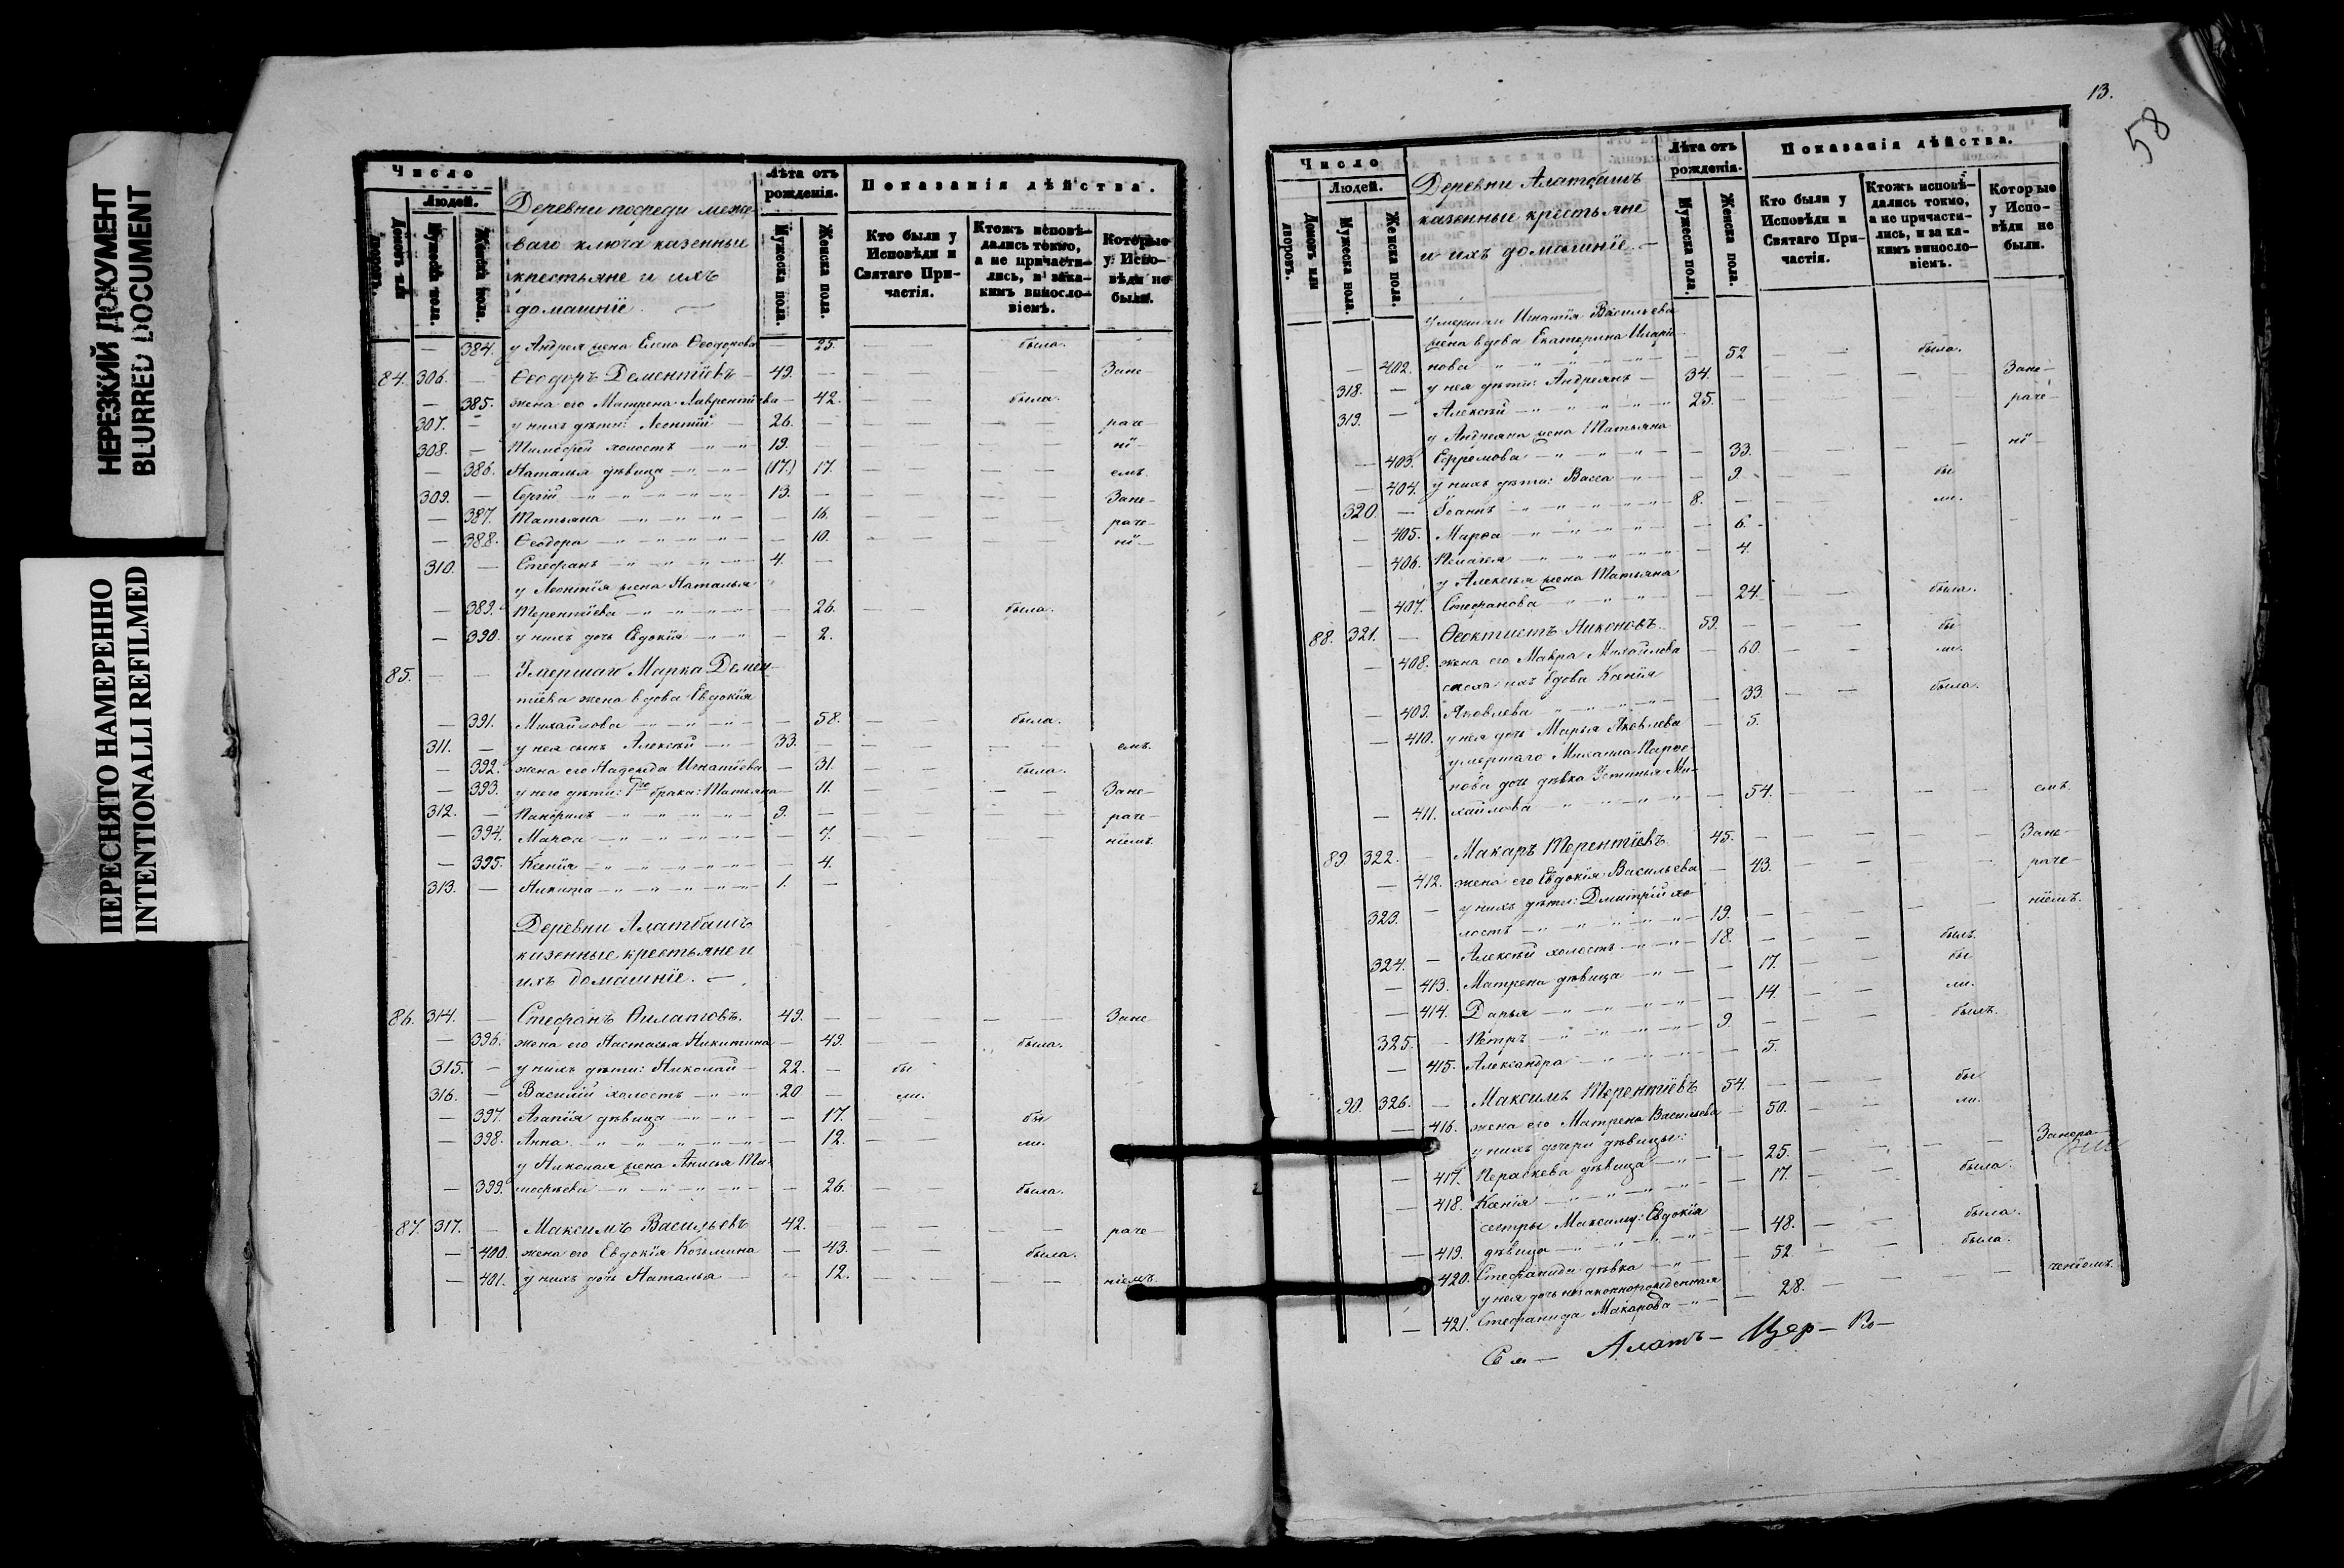 НЕРЕЗКИЙ ДОКУМЕНТ
BLURRED DOCUMENT
ПЕРЕСНЯТО НАМЕРЕННО
INTENTIONALLI REFILMED
Число
Домовъ или дворовъ.
Людей.
Мужеска пола.
Женска пола.
Деревни посреди меже-
ваго ключа казенные
крестьяне и ихъ
домашніе. —
Лѣта отъ рожденія.
Мужеска пола.
Женска пола.
Показанія дѣйства.
Кто были у Исповѣди и Святаго При-частія.
Ктожъ исповѣ-дались токмо, а не причасти-лись, и зака-кимъ винносло-віемъ.
Которые у Испо-вѣди не были.
— 384. у Андрея жена Елена Ѳеодорова 25. — — была.
84. 306. — Ѳеодоръ Дементіевъ — 49. — — — — — Зане-
— 385. жена его Матрена Лаврентіева — 42. — — была.
307. — у нихъ дѣти: Леонтій — 26. — — — — — раче-
308. — Тимоѳей холостъ — 19. — — — — — ні-
— 386. Наталья дѣвица — (17.) 17. — — — — емъ.
309. — Сергій — 13. — — — — — Зане-
— 387. Татьяна — — 16. — — — — раче-
— 388. Ѳеодора — — 10. — — — — ні-
310. — Стефанъ — 4. —
у Леонтія жена Наталья
— 389. Терентіева — — 26. — — была.
— 390. у нихъ дочь Евдокія — — 2.
85. — — Умершаго Марка Демен-
тіева жена вдова Евдокія
— 391. Михайлова — — 58. — — была.
311. — у нея сынъ Алексѣй — 33. — — — — — емъ.
— 392. жена его Надежда Игнатіева — 31. — — была.
— 393. у него дѣти: 1го брака: Татьяна — 11. — — — — Зане-
312. — Панфилъ — 9. — — — — раче-
— 394. Марѳа — — 7. — — — ніемъ.
— 395. Ксенія — — 4.
313. — Никита — 1. —
Деревни Алатбашъ
казенные крестьяне и
ихъ домашніе. —
86. 314. — Стефанъ Филатовъ. 49. — — — — — Зане
— 396. жена его Настасья Никитина — 49. — — была.
315. — у нихъ дѣти: Николай — 22. — бы
316. — Василій холостъ — 20 — ли.
— 397. Агапія дѣвица — — 17. — бы
— 398. Анна — — 12. — ли.
у Николая жена Анисья Ти-
— 399. моѳѣева — — 26. — — была.
87. 317. — Максимъ Васильевъ 42. — — — — — раче-
— 400. жена его Евдокія Козьмина — 43. — — была.
— 401. у нихъ дочь Наталья — — 12. — — — — ніемъ.
13.
58
Число
Домовъ или дворовъ.
Людей.
Мужеска пола.
Женска пола.
Деревни Алатбашъ
казенные крестьяне
и ихъ домашніе. —
Лѣта отъ рожденія.
Мужеска пола.
Женска пола.
Показанія дѣйства.
Кто были у Исповѣди и Святаго При-частія.
Ктожъ исповѣ-дались токмо, а не причасти-лись, и за ка-кимъ винносло-віемъ.
Которые у Испо-вѣди не были.
умершаго Игнатія Васильева
жена вдова Екатерина Иларіо-
— 402. нова — — 52 — — была.
318. — у нея дѣти: Андреянъ — 34. — — — — Зане-
319. — Алексѣй — 25. — — — — раче-
у Андреяна жена Татьяна
— 403. Ефремова — — 33. — — — — ні-
— 404. у нихъ дѣти: Васса — — 9. — — бы
320. — Іоаннъ — 8. — — — ли.
— 405. Марѳа — — 6. —
— 406. Пелагея — — 4.
у Алексѣя жена Татьяна
— 407. Стефанова — — 24. — — была.
88. 321. — Ѳеоктистъ Никоновъ. 59. — — — бы
— 408. жена его Мавра Михайлова — 60. — — ли.
сноха ихъ вдова Ксенія
— 409. Яковлева — — 33. — — была.
— 410. у нея дочь Марья Яковлева — 5.
умершаго Михаила Парѳе-
нова дочь дѣвка Устинья Ми-
— 411. хайлова — — 54. — — — — емъ.
89 322. — Макаръ Терентіевъ. 45. — — — — — Зане-
— 412. жена его Евдокія Васильева — 43. — — — раче-
323. — у нихъ дѣти: Дмитрій хо-
лостъ — 19. — — — — ніемъ.
324. — Алексѣй холостъ — 18. — — — былъ.
— 413. Матрена дѣвица — — 17. — — бы
— 414. Дарья — — 14. — — ли.
325. — Петръ — 9. — — — былъ.
— 415. Александра — — 5.
90. 326. — Максимъ Терентіевъ 54. — — — бы
— 416. жена его Матрена Васильева — 50. — — ли.
у нихъ дочери дѣвицы:
— 417. Параскева дѣвица — — 25. — — — — Занера-
— 418. Ксенія — — 17. — — была.
сестры Максиму: Евдокія
— 419. дѣвица — — 48. — — была.
— 420. Стефанида дѣвка — — 52. — — была.
у нея дочь незаконнорожденная
— 421. Стефанида Макарова — — 28. — — — — ченіемъ.
Алатъ — Цер — Ко —